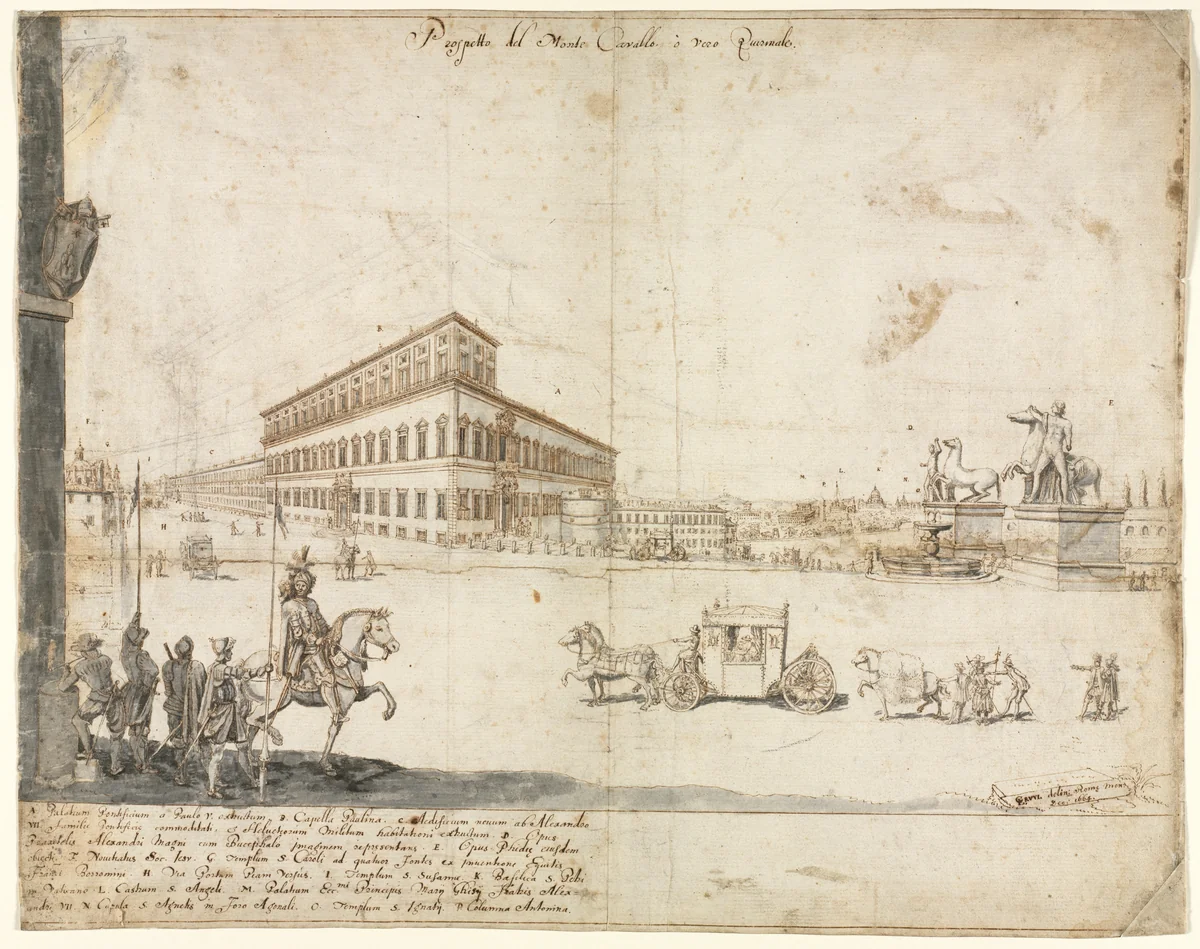 Prospetto del Monte Cavallo, ò vero Quirinale.
B
A
F
G
C
I
H
E
D
M P L K N O
LSvVL delin: Romę men:
Dec. 1664.
A Palatium Pontificium a Paulo V. exstructum, B. Capella Paulina. C Aedificium novum ab Alexandro
VII Familię Pontificię commoditati, & Helvetiorum Militum habitationi exstructum. D. Opus
Praxitelis Alexandri Magni cum Bucephalo imaginem repręsentans. E. Opus Phidię eiusdem
obiecti. F. Novitiatus Soc. Iesv. G. Templum S. Caroli ad quatuor Fontes ex inventione Equitis
Franc: Borromini. H Via Portam Piam Versus. I. Templum S. Susannę. K Basilica S. Petri
in Vaticano L Castrum S. Angeli. M. Palatium Ecc.mi Principis Mary Ghisy Fratris Alex-
andri VII N. Cupola S. Agnetis in Foro Agonali. O. Templum S. Ignatij. P Columna Antonina.